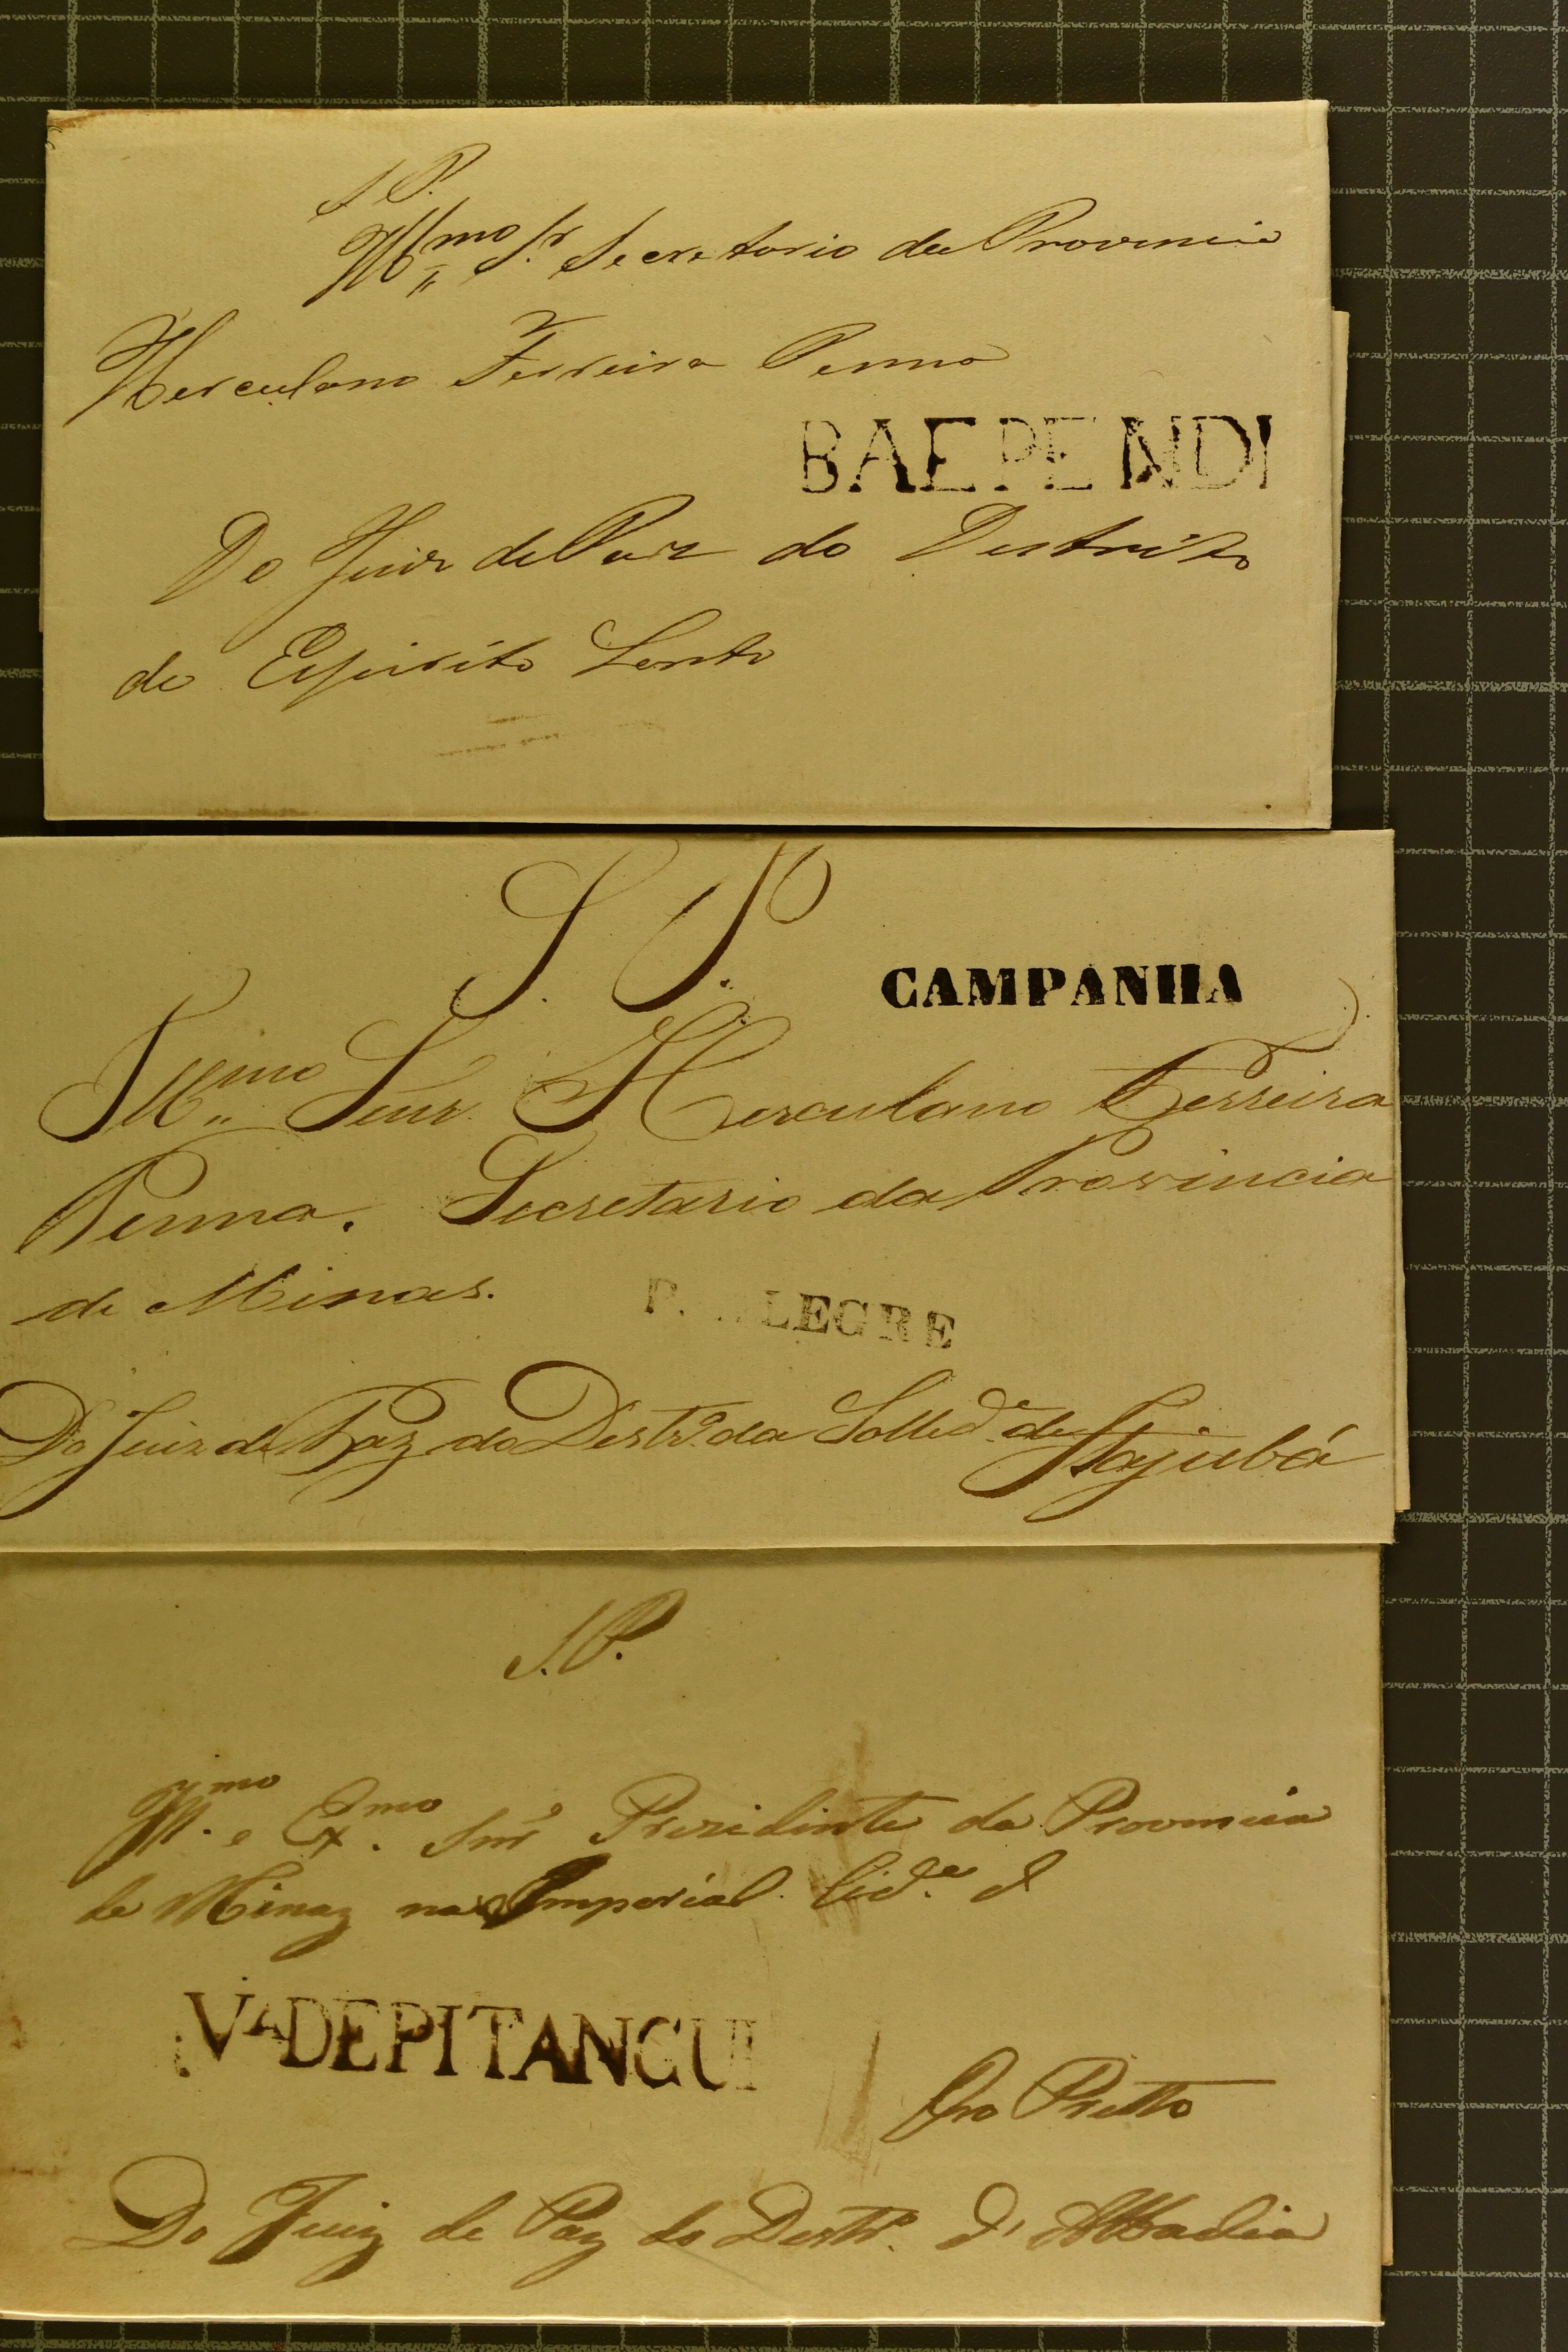 S P.
Illmo Sr. Secretario da Provincia
Herculano Ferreira Penna
BAEPENDI
Do Juiz de Paz do Destrito
do Espirito Santo
S. P.
CAMPANHA
Illmo Senr. Herculano Ferreira
Penna. Secretario da Provincia
de Minas.
P. LEGRE
Do Juiz de Paz do Destro. da Solledᵉ. de Itajubá
S. P.
Illmo. e Exmo. Snr Prezidente da Provincia
de Minaz na Imperial Cidᵉ. d
Vᴬ DE PITANGUI
Oro Pretto
Do Juiz de Paz do Destro. d' Abbadia